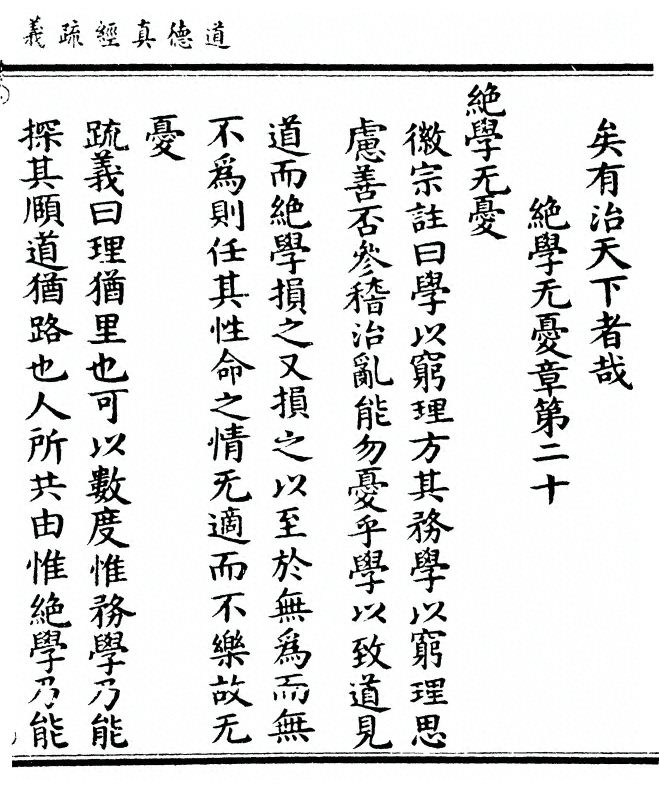 道德真經疏義
矣有治天下者哉
絶學无憂章第二十
絶學无憂
徽宗註曰學以窮理方其務學以窮理思
慮善否參稽治亂能勿憂乎學以致道見
道而絶學損之又損之以至於無爲而無
不爲則任其性命之情无適而不樂故无
憂
疏義曰理猶里也可以數度惟務學乃能
探其賾道猶路也人所共由惟絶學乃能